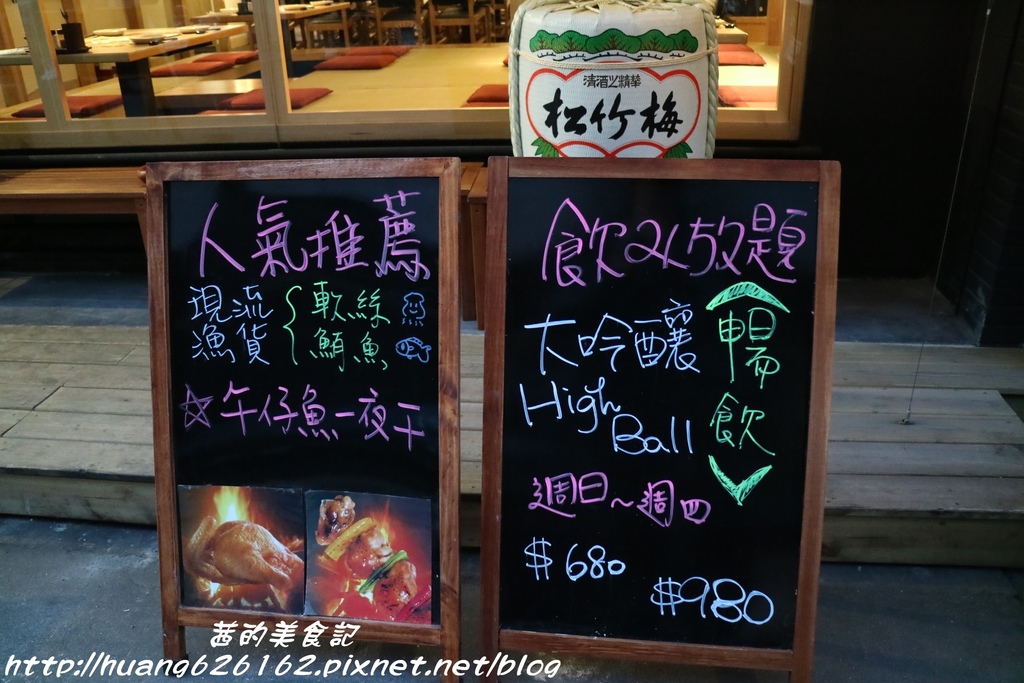 清酒之精華
松竹梅
人氣推薦
現流漁貨 { 軟絲 鮪魚
☆午仔魚一夜干
飲み放題
大吟釀
High Ball
暢飲
週日~週四
$680
$980
茜的美食記
http://huang626162.pixnet.net/blog